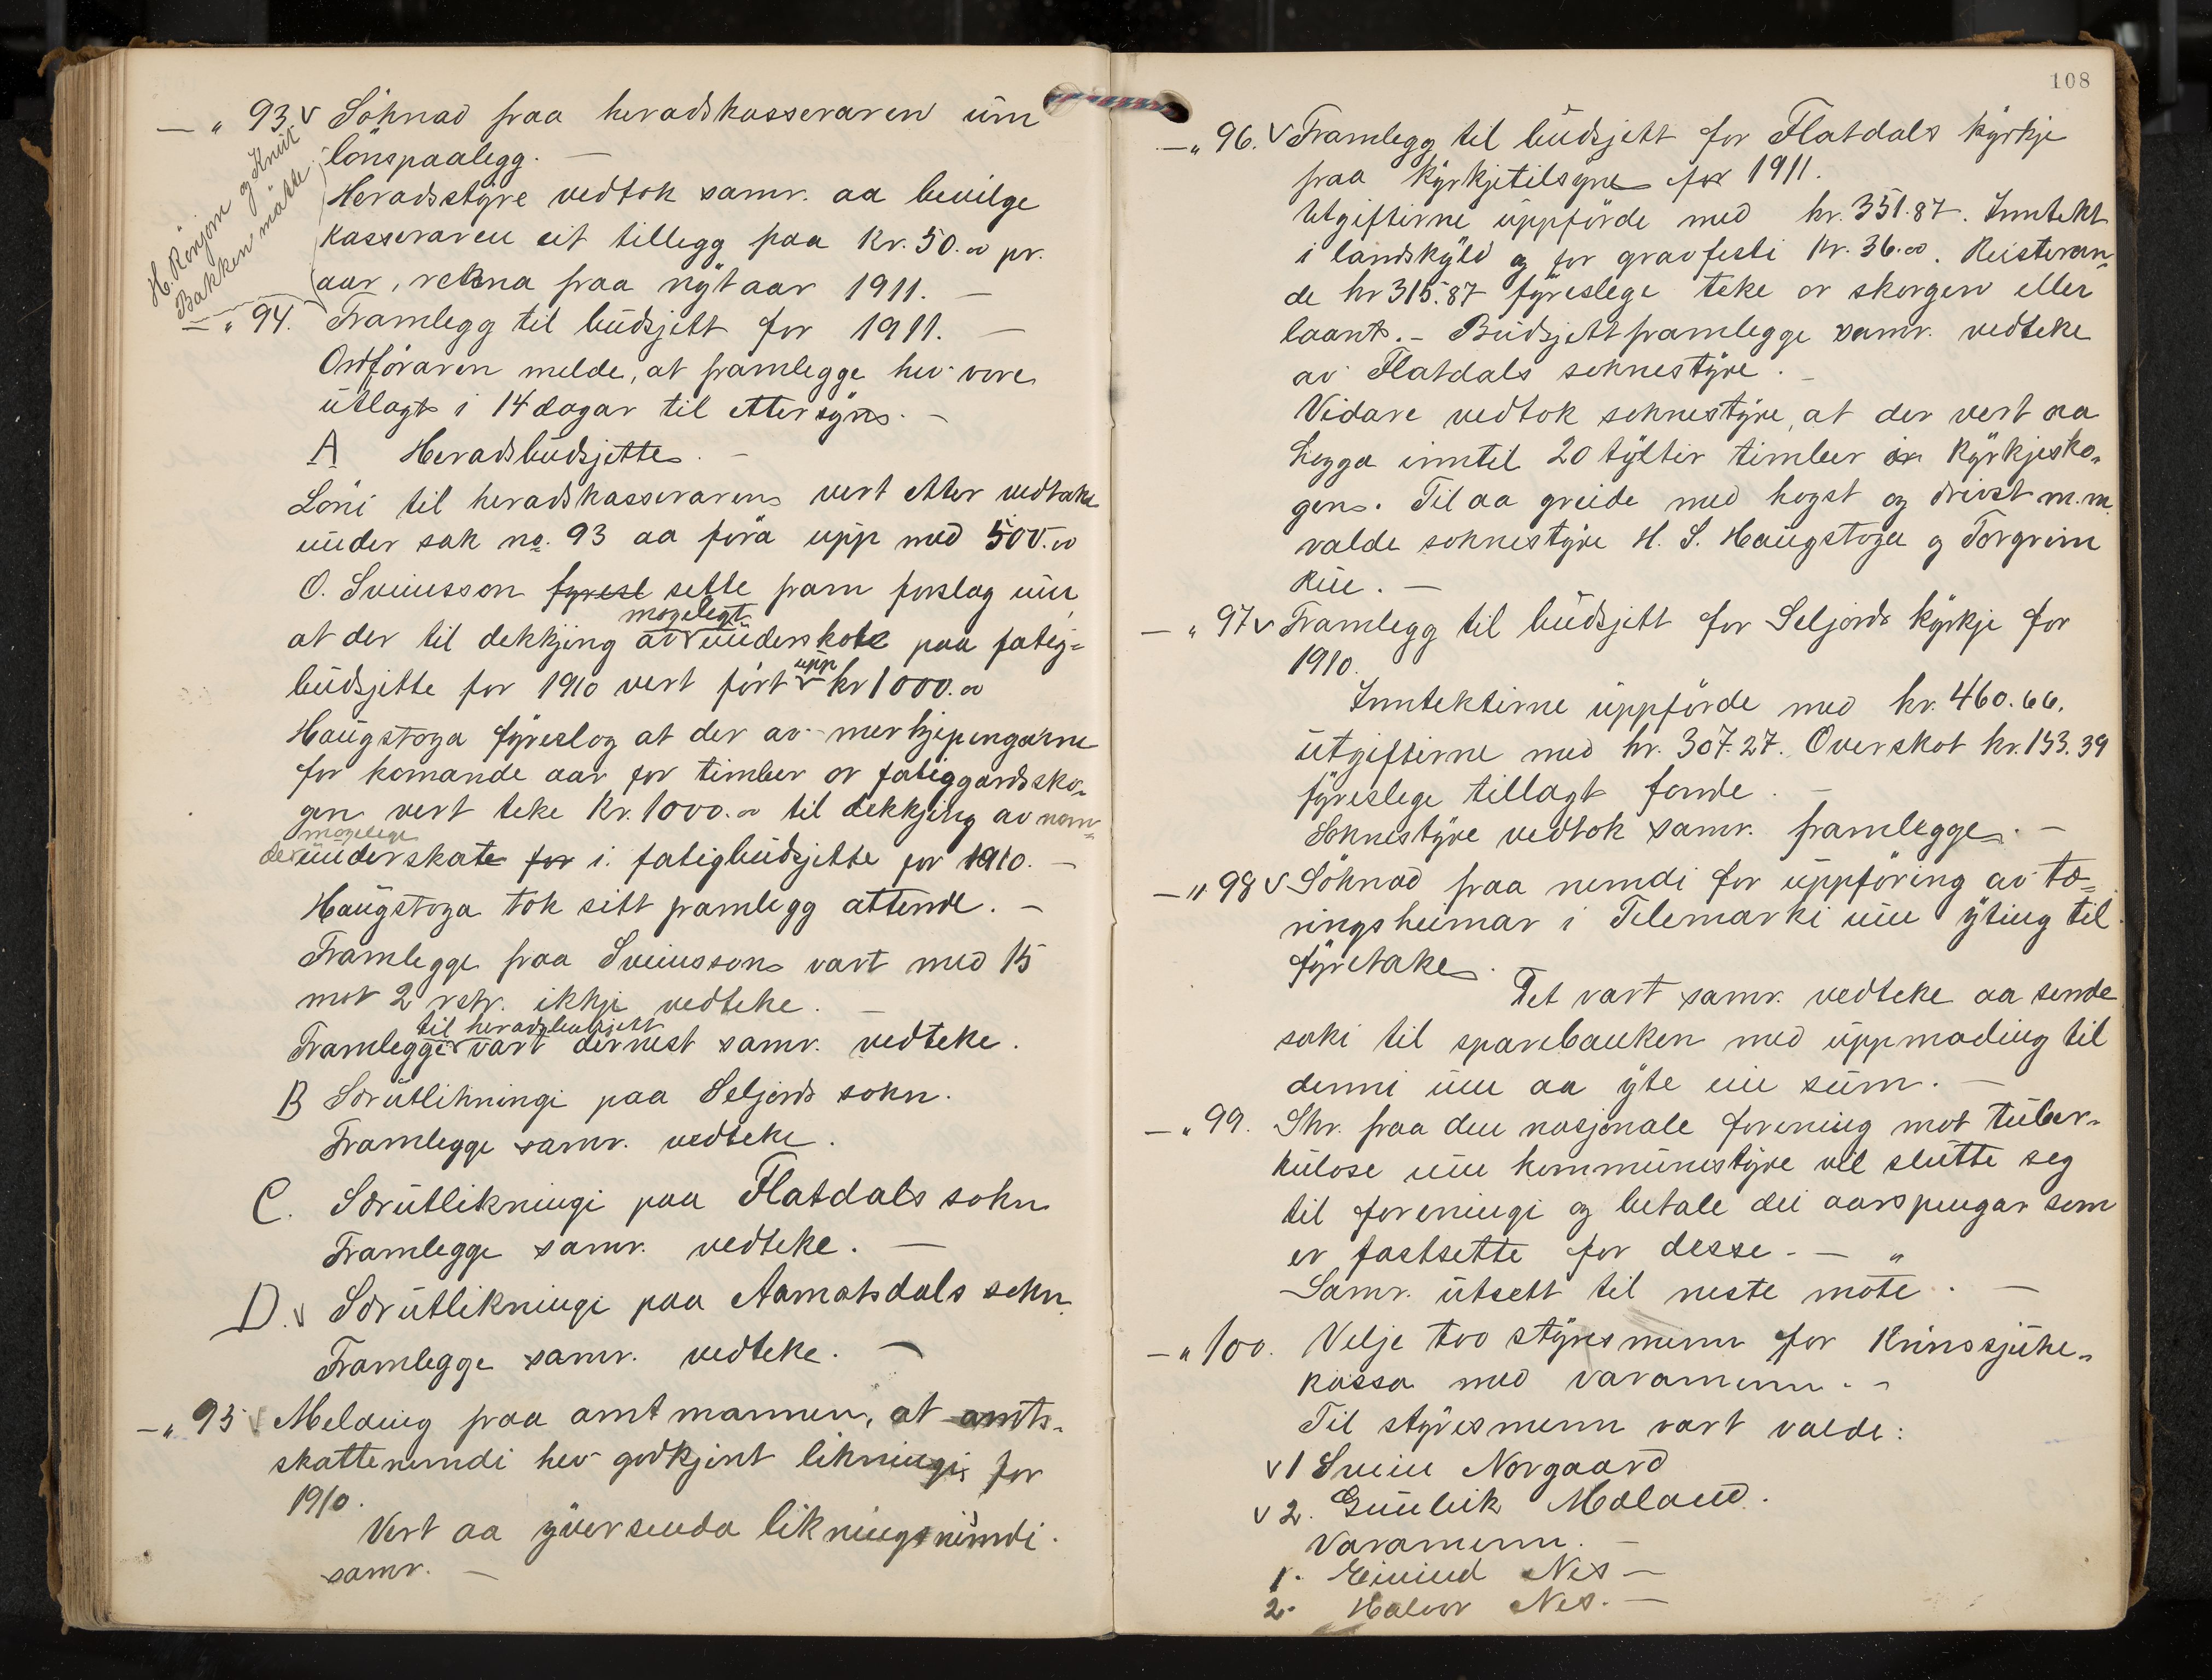 — " 93 v Söknad fraa heradskasseraren um
lönspaalegg. —
H. Rönjom og Knut
Bakken mötte
Heradsstyre vedtok samr. aa bevilge
kasseraren eit tillegg paa kr. 50.00 pr.
aar, rekna fraa nyt aar 1911. —
— " 94. Framlegg til budsjett for 1911. —
Ordföraren melde, at framlegge hev vore
utlagt i 14 dagar til ettersyn. —
A Heradsbudsjette. —
Löni til heradskasseraren vert etter vedtake
under sak no. 93 aa föra upp med 500.00
O. Sveinsson fyresl sette fram forslag um,
at der til dekkjing av mogelegt underskot paa fatig=
budsjette for 1910 vert fört upp kr 1000.00
Haugstoga fyreslog at der av merkjepengarne
for komande aar for timber or fatiggardssko=
gen vert teke kr. 1000.00 til dekkjing av nem=
de mogelege underskot for i fatigbudsjette for 1910. —
Haugstoga tok sitt framlegg attende. —
Framlegge fraa Sveinsson vart med 15
mot 2 rstr. ikkje vedteke. —
Framlegge til heradsbudsjett vart dernest samr. vedteke.
B Særutlikningi paa Seljords sokn.
Framlegge samr. vedteke.
C. Særutlikningi paa Flatdals sokn
Framlegge samr. vedteke. —
D. v Særutlikningi paa Aamotsdals sokn
Framlegge samr. vedteke. —
— " 95 v Melding fraa amtmannen, at amts=
skattenemdi hev godkjent likningi for
1910.
Vert aa yversenda likningsnemdi.
samr. —
108
— " 96. v Framlegg til budsjett for Flatdals kyrkje
fraa kyrkjetilsyne for 1911.
Utgiftirne uppförde med kr. 351.87. Inntekt
i landskyld og for gravfesti kr. 36.00. Resteran=
de kr 315.87 fyreslege teke or skogen eller
laant. — Budsjettframlegge samr. vedteke
av Flatdals soknestyre. —
Vidare vedtok soknestyre, at der vert aa
hogga inntil 20 tylftir timber or kyrkjesko=
gen. Til aa greide med hogst og drivst m.m.
valde soknestyre H. S. Haugstoga og Torgrim
Rui. —
— " 97 v Framlegg til budsjett for Seljords kyrkje for
1910.
Inntektirne uppförde med kr. 460.66.
utgiftirne med kr. 307.27. Overskot kr. 153.39
fyreslege tillagt fonde. —
Soknestyre vedtok samr. framlegge. —
— " 98 v Söknad fraa nemdi for uppföring av tæ=
ringsheimar i Telemarki um yting til
fyretake.
Det vart samr. vedteke aa sende
saki til sparebanken med uppmoding til
denni um aa yte ein sum. —
— " 99. Skr. fraa den nasjonale forening mot tuber=
kulose um kommunestyre vil slutte seg
til foreningi og betale dei aarspengar som
er fastsette for desse. — "
Samr. utsett til neste möte. —
— " 100. Velje tvo styresmenn for Krinssjuke=
kassa med varamenn. —
Til styresmenn vart valde:
v 1 Svein Norgaard
v 2. Gunleik Moland.
Varamenn. —
1. Eivind Nes —
2. Halvor Nes. —